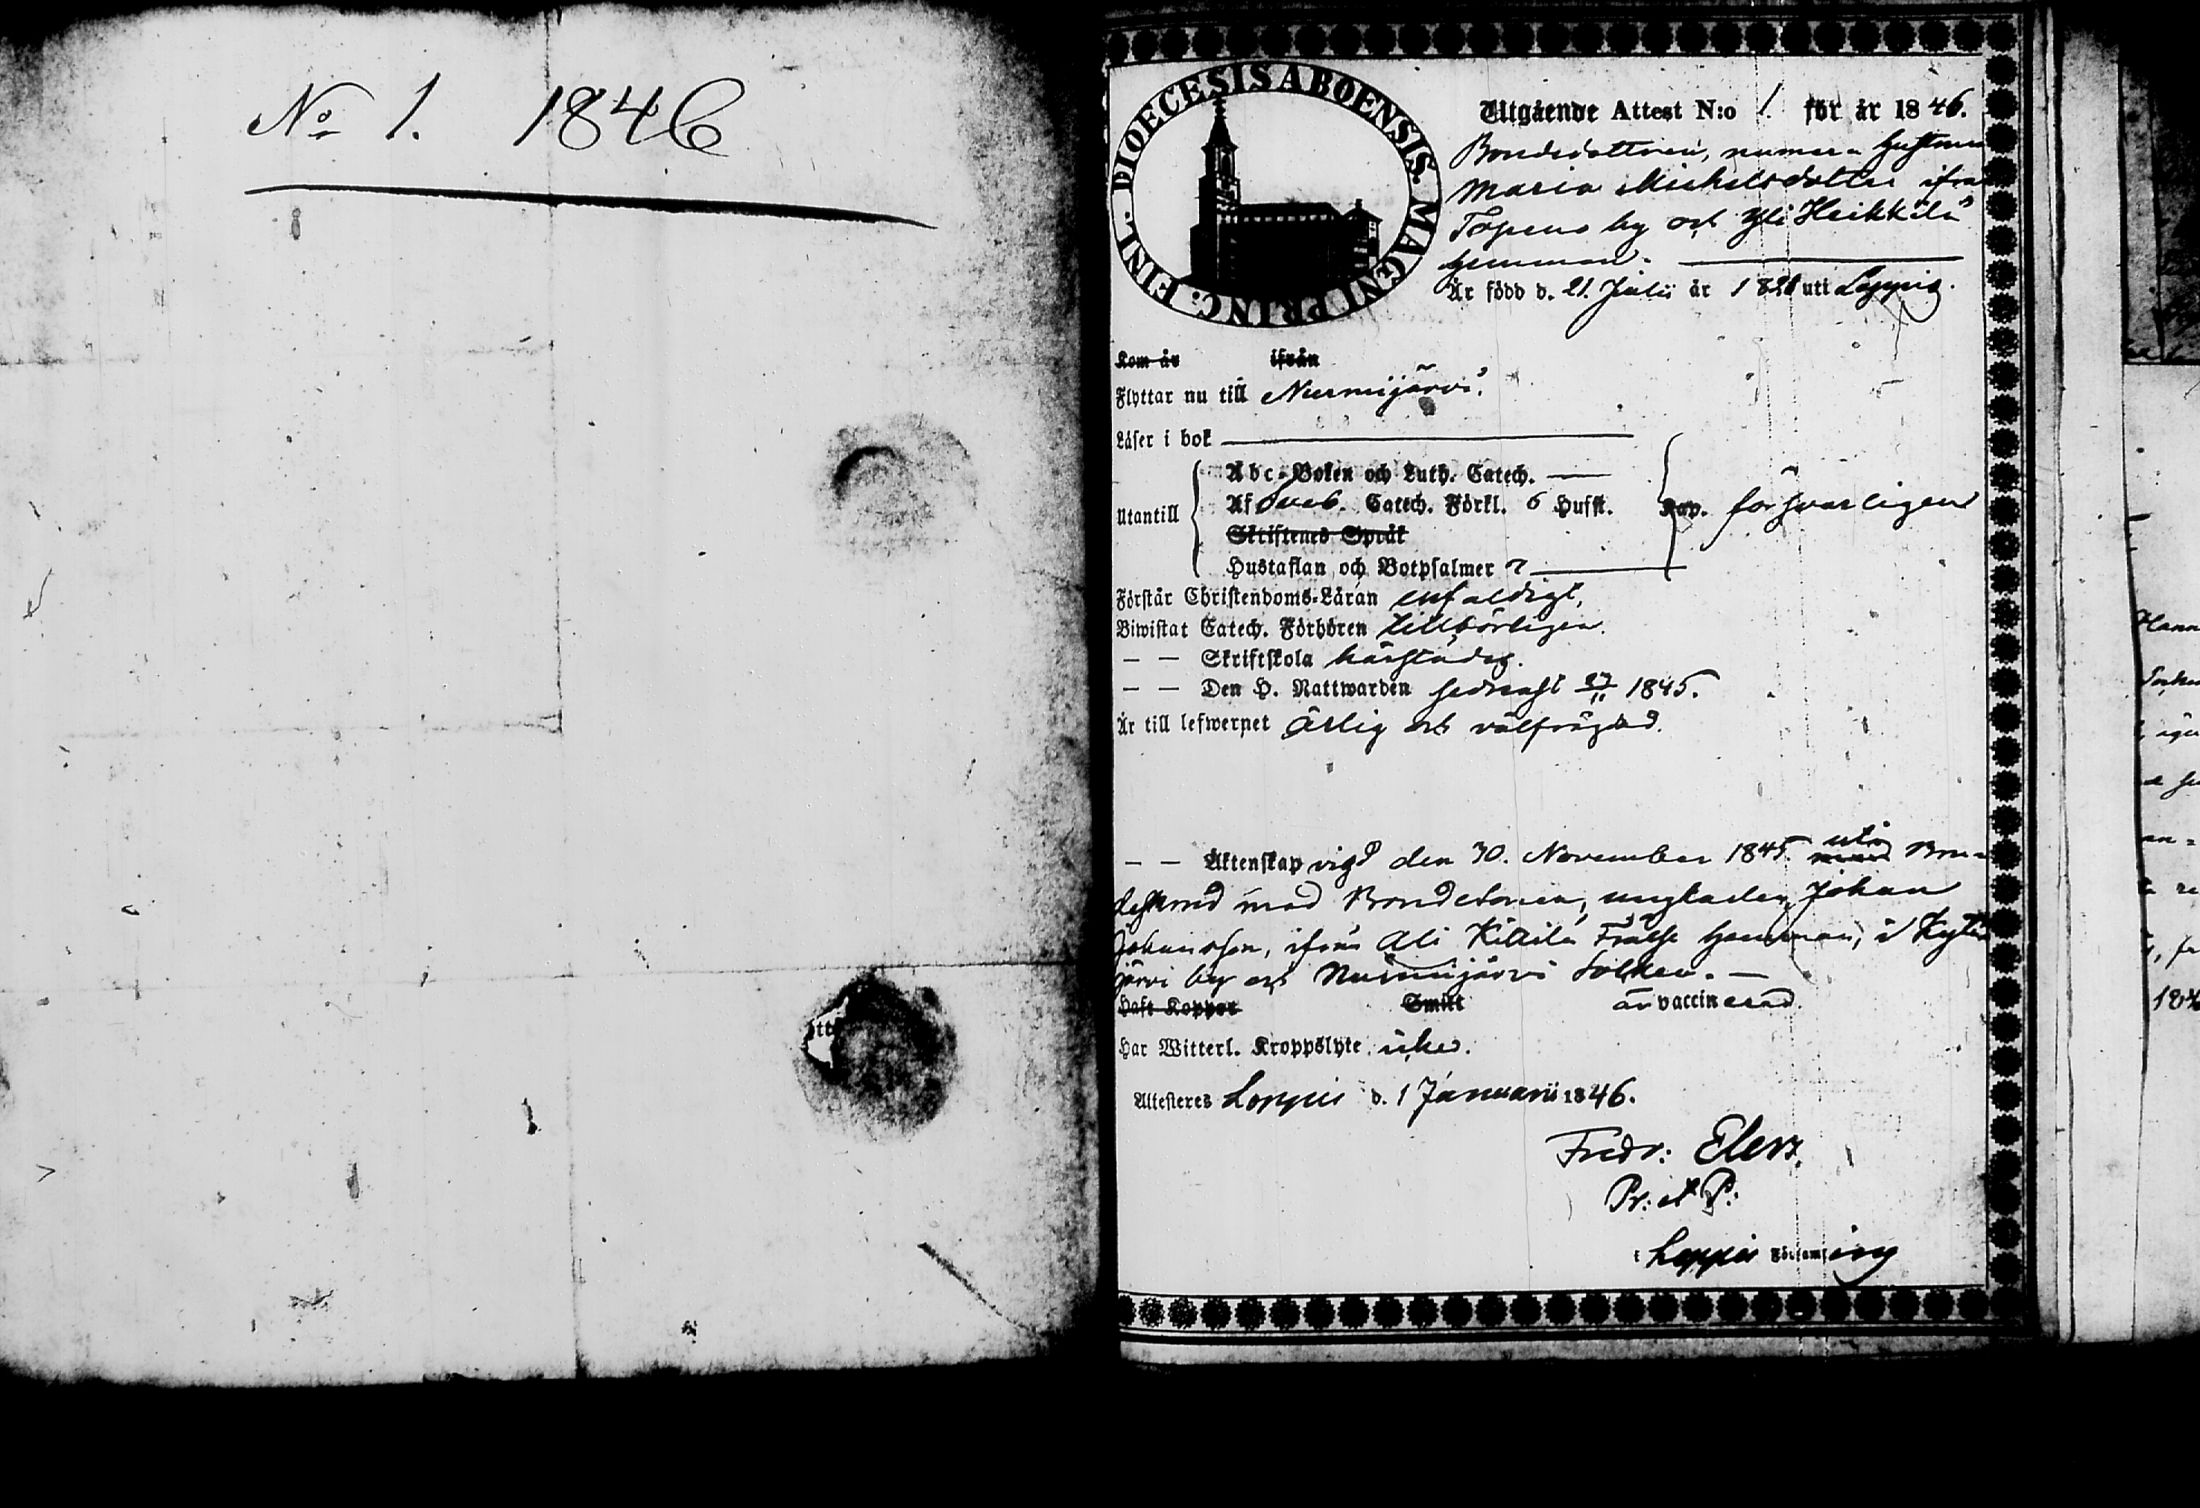 No 1. 1846
DIOECESIS ABOENSIS. MAGNI PRINC: FINL.
Utgående Attest N:o 1. för år 1846.
Bondedottren, numera hustrun
Maria Michelsdotter ifrån
Topeno by och Yli Heikkilä
hemman.
Är född d. 21. Julii år 182 uti Loppis.
Kom år ifrån
Flyttar nu till Nurmijärvi.
Läser i bok
Abc-Boken och Luth. Catech.
Utantill
Af Sveb. Catech. Förkl. 6 Hufst. Kap. försvarligen
Skriftenes Språk
Hustaflan och Botpsalmer 7
Förstår Christendoms-Läran enfaldigt,
Biwistat Catech. Förhören tillbörligen.
— — Skriftskola härstädes.
— — Den H. Nattwarden sednast 27/11 1845.
Är till lefwernet ärlig och välfrägdad.
— — Äktenskap vigd den 30. November 1845. uti Bon-
destånd med Bondesonen, ungkarlen Johan
Johansson, ifrån Ali Kittilä Frälse hemman, i Kytä
järvi by och Nurmijärvi Socken. —
Haft Koppor Smitt är vaccinerad.
Har Witterl. Kroppslyte icke.
Attesteres Loppis d. 1 Januarii 1846.
Fredr: Elers.
Pr: et P:
i Loppis Församling